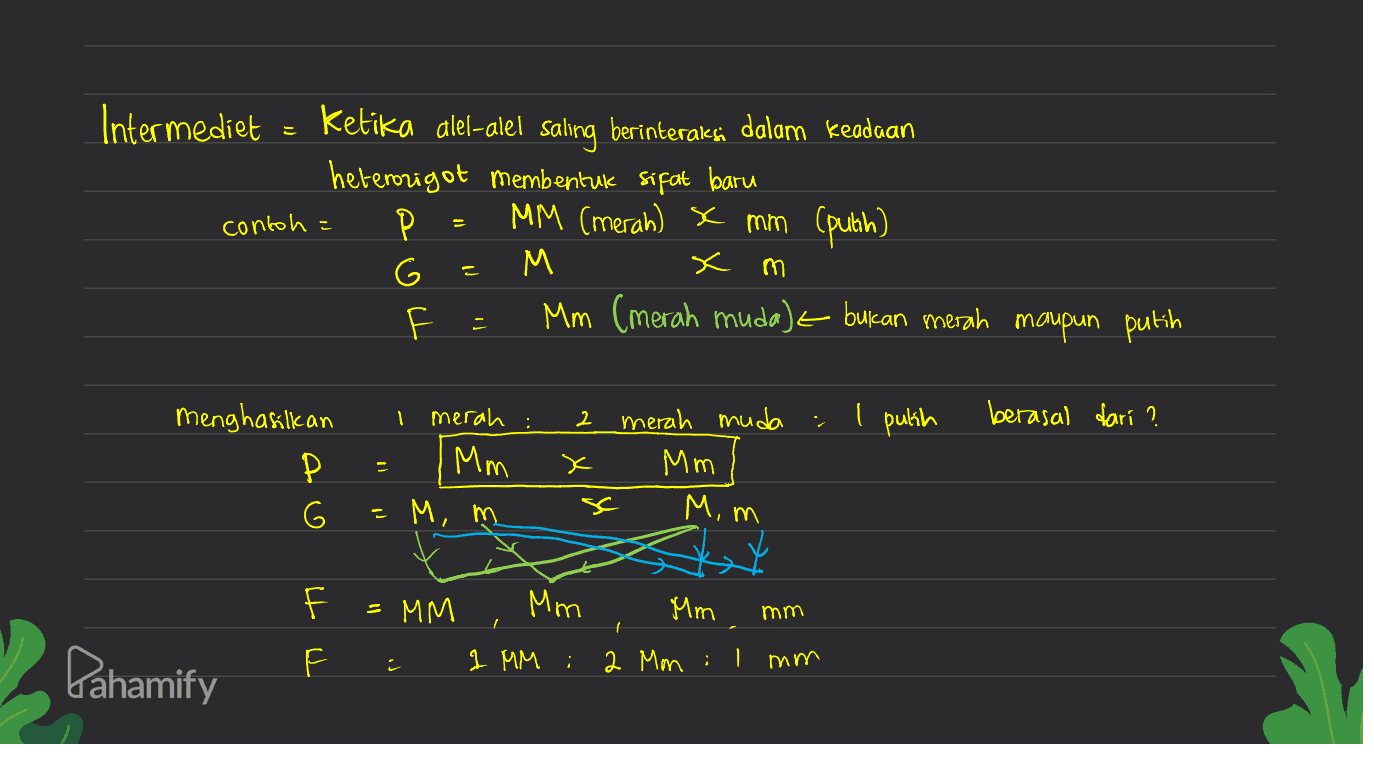 Intermediet = Ketika alel-alel saling berinteraksi dalam keadaan
heterozigot membentuk sifat baru
contoh = P = MM (merah) x mm (putih)
G = M x m
F = Mm (merah muda) ← bukan merah maupun putih
menghasilkan 1 merah : 2 merah muda : 1 putih berasal dari ?
P = Mm x Mm
G = M, m x M, m
F = MM , Mm , Mm , mm
F = 1 MM : 2 Mm : 1 mm
Pahamify